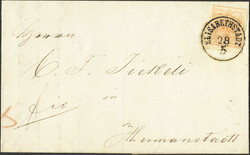 ELISABETHSTADT
28
5
Herrn
C. F. Jickeli
in
Hermannstadt